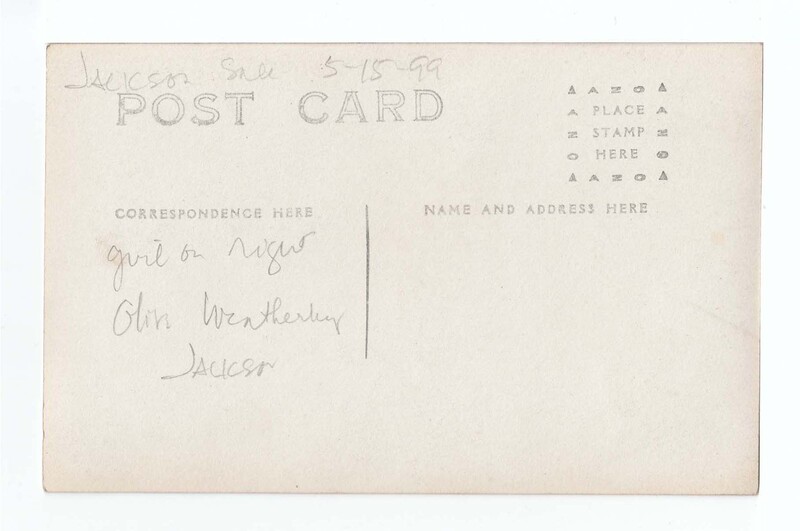 Jackson Sale 5-15-99
POST CARD
AZO
A PLACE A
Z STAMP Z
O HERE O
AZO
CORRESPONDENCE HERE
NAME AND ADDRESS HERE
girl on right
Weatherby
Jackson